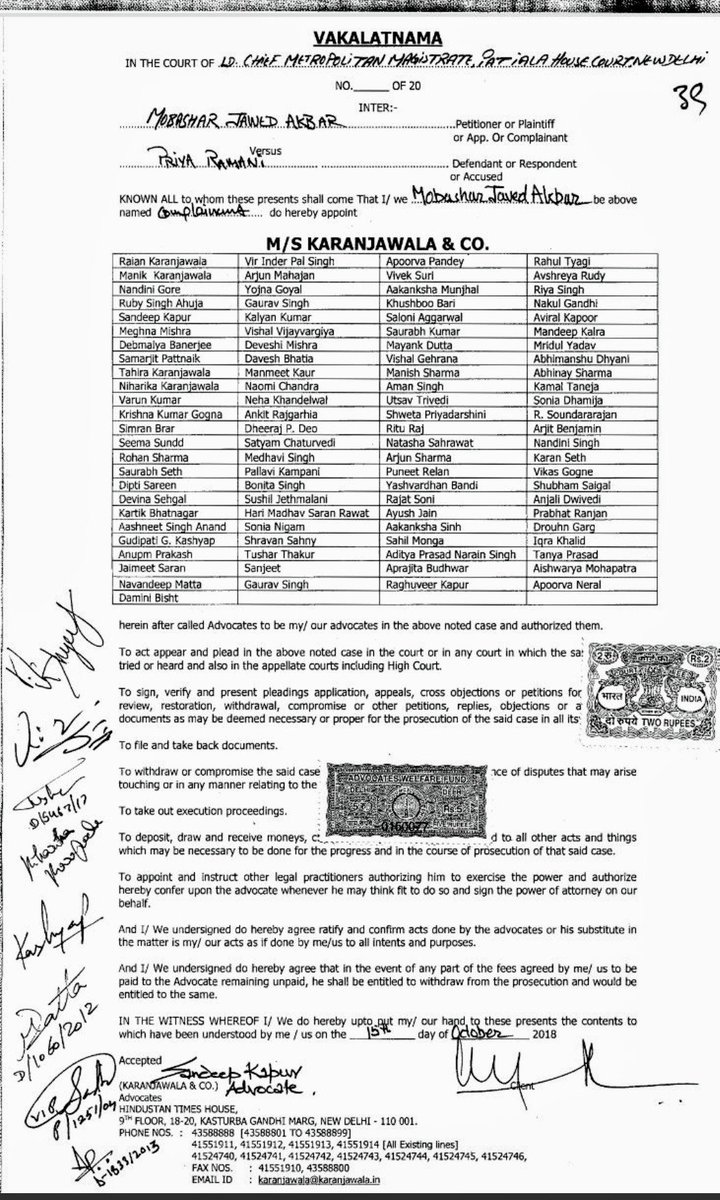 VAKALATNAMA
IN THE COURT OF LD. CHIEF METROPOLITAN MAGISTRATE, PATIALA HOUSE COURT, NEW DELHI
NO.______ OF 20
39
INTER:-
MOBASHAR JAWED AKBAR Petitioner or Plaintiff
or App. Or Complainant
Versus
PRIYA RAMANI Defendant or Respondent
or Accused
KNOWN ALL to whom these presents shall come That I/ we Mobashar Javed Akbar be above
named Complainant..... do hereby appoint
M/S KARANJAWALA & CO.
Raian Karanjawala Vir Inder Pal Singh Apoorva Pandey Rahul Tyagi
Manik Karanjawala Arjun Mahajan Vivek Suri Avshreya Rudy
Nandini Gore Yojna Goyal Aakanksha Munjhal Riya Singh
Ruby Singh Ahuja Gaurav Singh Khushboo Bari Nakul Gandhi
Sandeep Kapur Kalyan Kumar Saloni Aggarwal Aviral Kapoor
Meghna Mishra Vishal Vijayvargiya Saurabh Kumar Mandeep Kalra
Debmalya Banerjee Deveshi Mishra Mayank Dutta Mridul Yadav
Samarjit Pattnaik Davesh Bhatia Vishal Gehrana Abhimanshu Dhyani
Tahira Karanjawala Manmeet Kaur Manish Sharma Abhinay Sharma
Niharika Karanjawala Naomi Chandra Aman Singh Kamal Taneja
Varun Kumar Neha Khandelwal Utsav Trivedi Sonia Dhamija
Krishna Kumar Gogna Ankit Rajgarhia Shweta Priyadarshini R. Soundararajan
Simran Brar Dheeraj P. Deo Ritu Raj Arjit Benjamin
Seema Sundd Satyam Chaturvedi Natasha Sahrawat Nandini Singh
Rohan Sharma Medhavi Singh Arjun Sharma Karan Seth
Saurabh Seth Pallavi Kampani Puneet Relan Vikas Gogne
Dipti Sareen Bonita Singh Yashvardhan Bandi Shubham Saigal
Devina Sehgal Sushil Jethmalani Rajat Soni Anjali Dwivedi
Kartik Bhatnagar Hari Madhav Saran Rawat Ayush Jain Prabhat Ranjan
Aashneet Singh Anand Sonia Nigam Aakanksha Sinh Drouhn Garg
Gudipati G. Kashyap Shravan Sahny Sahil Monga Iqra Khalid
Anupm Prakash Tushar Thakur Aditya Prasad Narain Singh Tanya Prasad
Jaimeet Saran Sanjeet Aprajita Budhwar Aishwarya Mohapatra
Navandeep Matta Gaurav Singh Raghuveer Kapur Apoorva Neral
Damini Bisht
herein after called Advocates to be my/ our advocates in the above noted case and authorized them.
To act appear and plead in the above noted case in the court or in any court in which the sa
tried or heard and also in the appellate courts including High Court.
2 रु Rs.2
भारत INDIA
दो रुपये TWO RUPEES
To sign, verify and present pleadings application, appeals, cross objections or petitions for
review, restoration, withdrawal, compromise or other petitions, replies, objections or a
documents as may be deemed necessary or proper for the prosecution of the said case in all its
To file and take back documents.
To withdraw or compromise the said case nce of disputes that may arise
touching or in any manner relating to the
ADVOCATES WELFARE FUND
0160077
To take out execution proceedings.
To deposit, draw and receive moneys, c d to all other acts and things
which may be necessary to be done for the progress and in the course of prosecution of that said case.
To appoint and instruct other legal practitioners authorizing him to exercise the power and authorize
hereby confer upon the advocate whenever he may think fit to do so and sign the power of attorney on our
behalf.
And I/ We undersigned do hereby agree ratify and confirm acts done by the advocates or his substitute in
the matter is my/ our acts as if done by me/us to all intents and purposes.
And I/ We undersigned do hereby agree that in the event of any part of the fees agreed by me/ us to be
paid to the Advocate remaining unpaid, he shall be entitled to withdraw from the prosecution and would be
entitled to the same.
IN THE WITNESS WHEREOF I/ We do hereby upto put my/ our hand to these presents the contents to
which have been understood by me / us on the 15th day of October 2018
Accepted
Sandeep Kapur
Advocate.
Client
(KARANJAWALA & CO.)
Advocates
HINDUSTAN TIMES HOUSE,
9TH FLOOR, 18-20, KASTURBA GANDHI MARG, NEW DELHI - 110 001.
PHONE NOS. : 43588888 [43588801 TO 43588899]
41551911, 41551912, 41551913, 41551914 [All Existing lines]
41524740, 41524741, 41524742, 41524743, 41524744, 41524745, 41524746,
FAX NOS. : 41551910, 43588800
EMAIL ID : karanjawala@karanjawala.in
D/5467/17
Niharika
Kashyap
D/1060/2012
P/1251/04
D-1833/2013